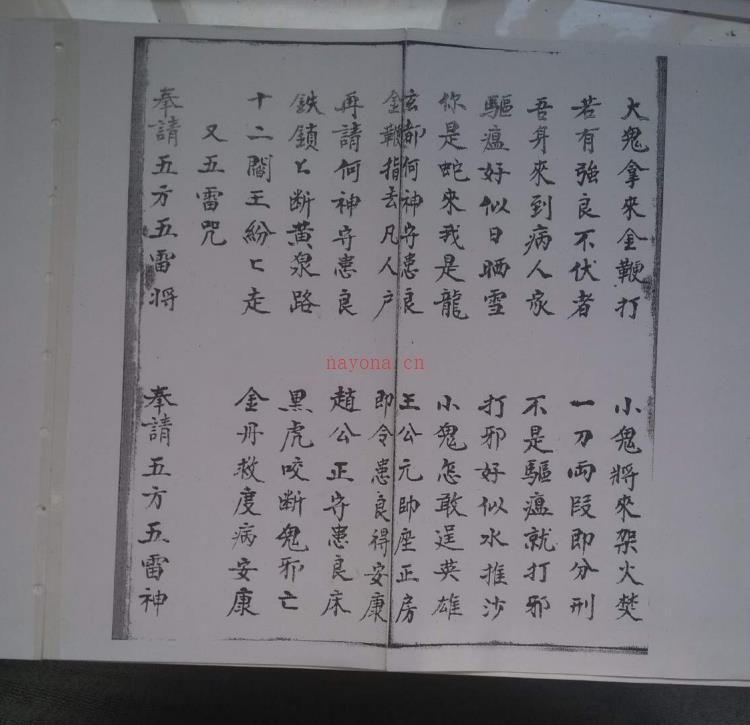 大鬼拿來金鞭打 小鬼將來架火焚
若有強良不伏者 一刀両段即分刑
吾身來到病人家 不是驅瘟就打邪
驅瘟好似日晒雪 打邪好似水推沙
你是蛇來我是龍 小鬼怎敢逞英雄
玄都何神守患良 王公元帅座正房
金鞭指去凡人户 即令患良得安康
再請何神守患良 趙公正守患良床
鉄鎖匕断黄泉路 黑虎咬断鬼邪亡
十二閻王紛匕走 金丹救度病安康
又五雷咒
奉請五方五雷将 奉請五方五雷神
nayona.cn